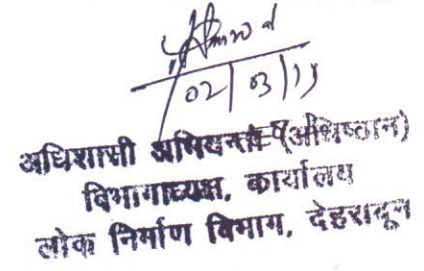 02/03/15
अधिशासी अभियन्ता (अधिष्ठान)
विभागाध्यक्ष, कार्यालय
लोक निर्माण विभाग, देहरादून